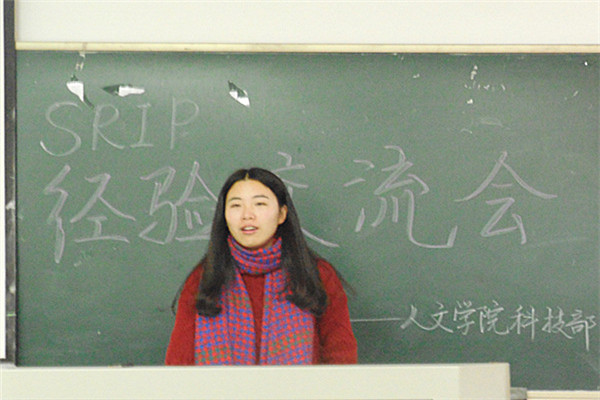 SRIP
经验交流会
——人文学院科技部